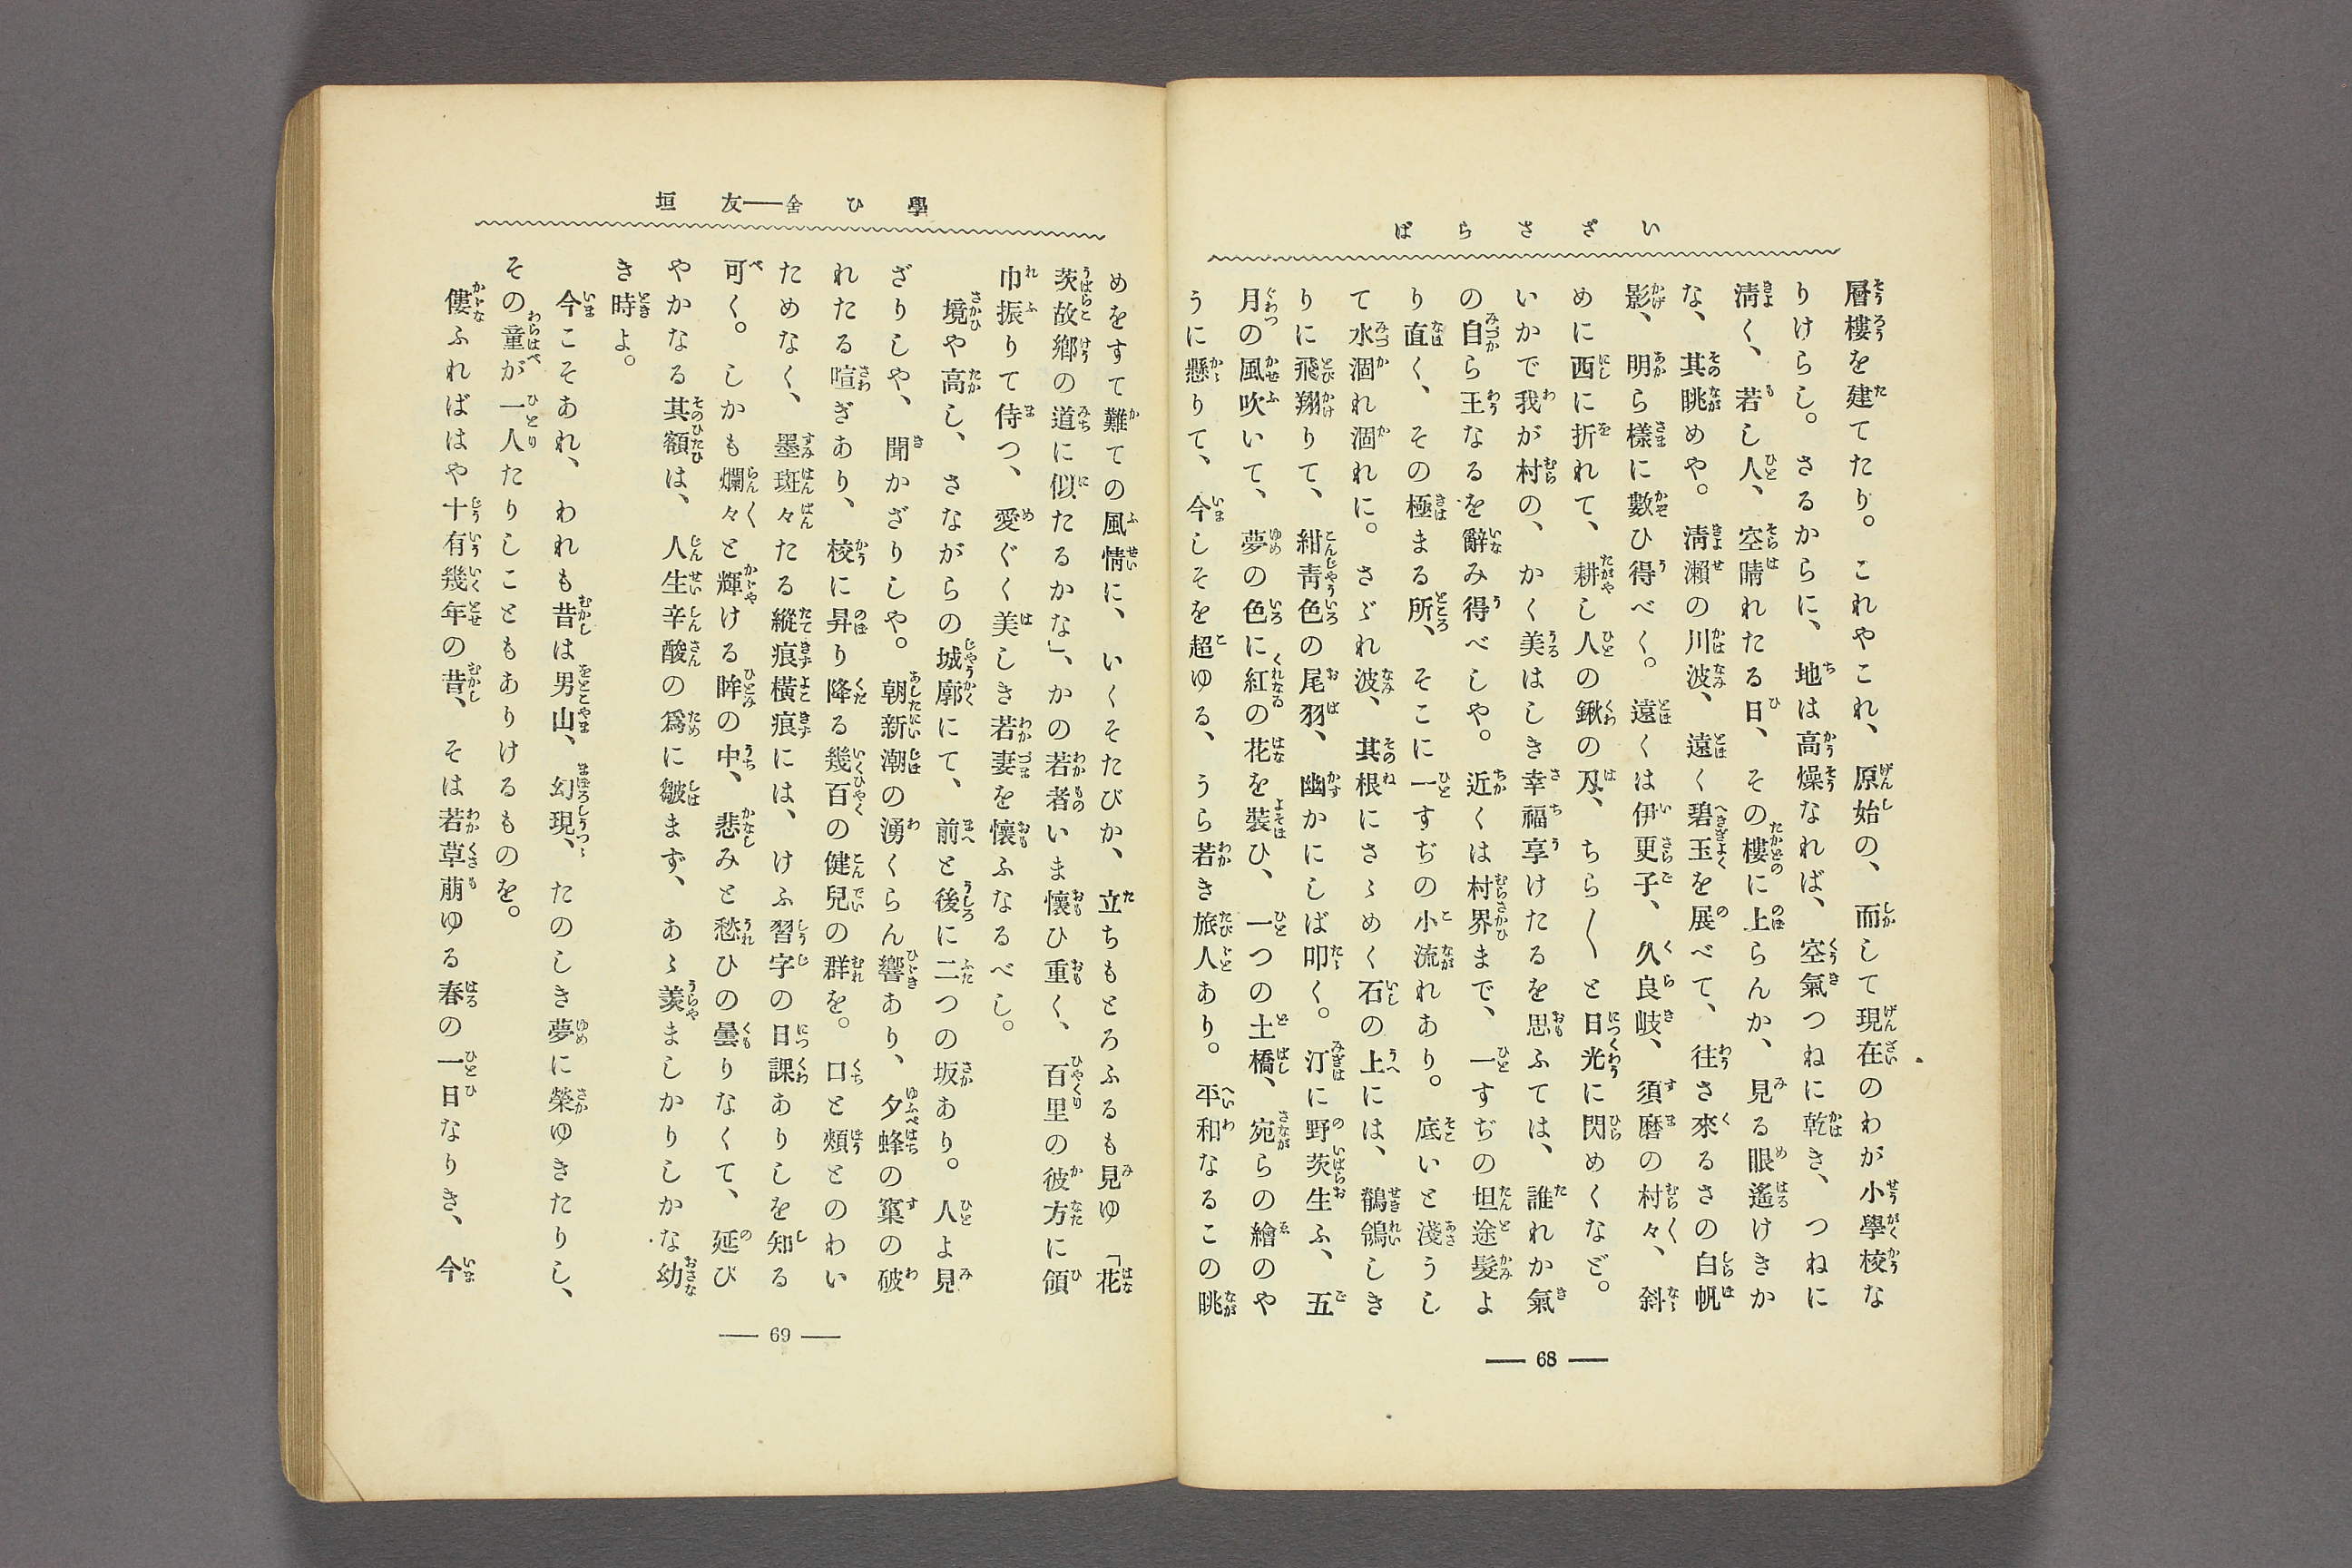 いざさらば
層樓を建てたり。これやこれ、原始の、而して現在のわが小學校な
りけらし。さるからに、地は高燥なれば、空氣つねに乾き、つねに
淸く、若し人、空晴れたる日、その樓に上らんか、見る眼遙けきか
な、其眺めや。淸瀨の川波、遠く碧玉を展べて、往さ來るさの白帆
影、明ら樣に數ひ得べく。遠くは伊更子、久良岐、須磨の村々、斜
めに西に折れて、耕し人の鍬の刄、ちら〱と日光に閃めくなど。
いかで我が村の、かく美はしき幸福享けたるを思ふては、誰れか氣
の自ら王なるを辭み得べしや。近くは村界まで、一すぢの坦途髮よ
り直く、その極まる所、そこに一すぢの小流れあり。底いと淺うし
て水涸れ涸れに。さゞれ波、其根にさゝめく石の上には、鶺鴒しき
りに飛翔りて、紺靑色の尾羽、幽かにしば叩く。汀に野茨生ふ、五
月の風吹いて、夢の色に紅の花を裝ひ、一つの土橋、宛らの繪のや
うに懸りて、今しそを超ゆる、うら若き旅人あり。平和なるこの眺
68
學ひ舍――友垣
めをすて難ての風情に、いくそたびか、立ちもとろふるも見ゆ「花
茨故鄕の道に似たるかな」、かの若者いま懷ひ重く、百里の彼方に領
巾振りて侍つ、愛ぐく美しき若妻を懷ふなるべし。
境や高し、さながらの城廓にて、前と後に二つの坂あり。人よ見
ざりしや、聞かざりしや。朝新潮の湧くらん響あり、夕蜂の窠の破
れたる喧ぎあり、校に昇り降る幾百の健兒の群を。口と頰とのわい
ためなく、墨斑々たる縱痕橫痕には、けふ習字の日課ありしを知る
可く。しかも爛々と輝ける眸の中、悲みと愁ひの曇りなくて、延び
やかなる其額は、人生辛酸の爲に皺まず、あゝ羨ましかりしかな幼
き時よ。
今こそあれ、われも昔は男山、幻現、たのしき夢に榮ゆきたりし、
その童が一人たりしこともありけるものを。
僂ふればはや十有幾年の昔、そは若草萠ゆる春の一日なりき、今
69